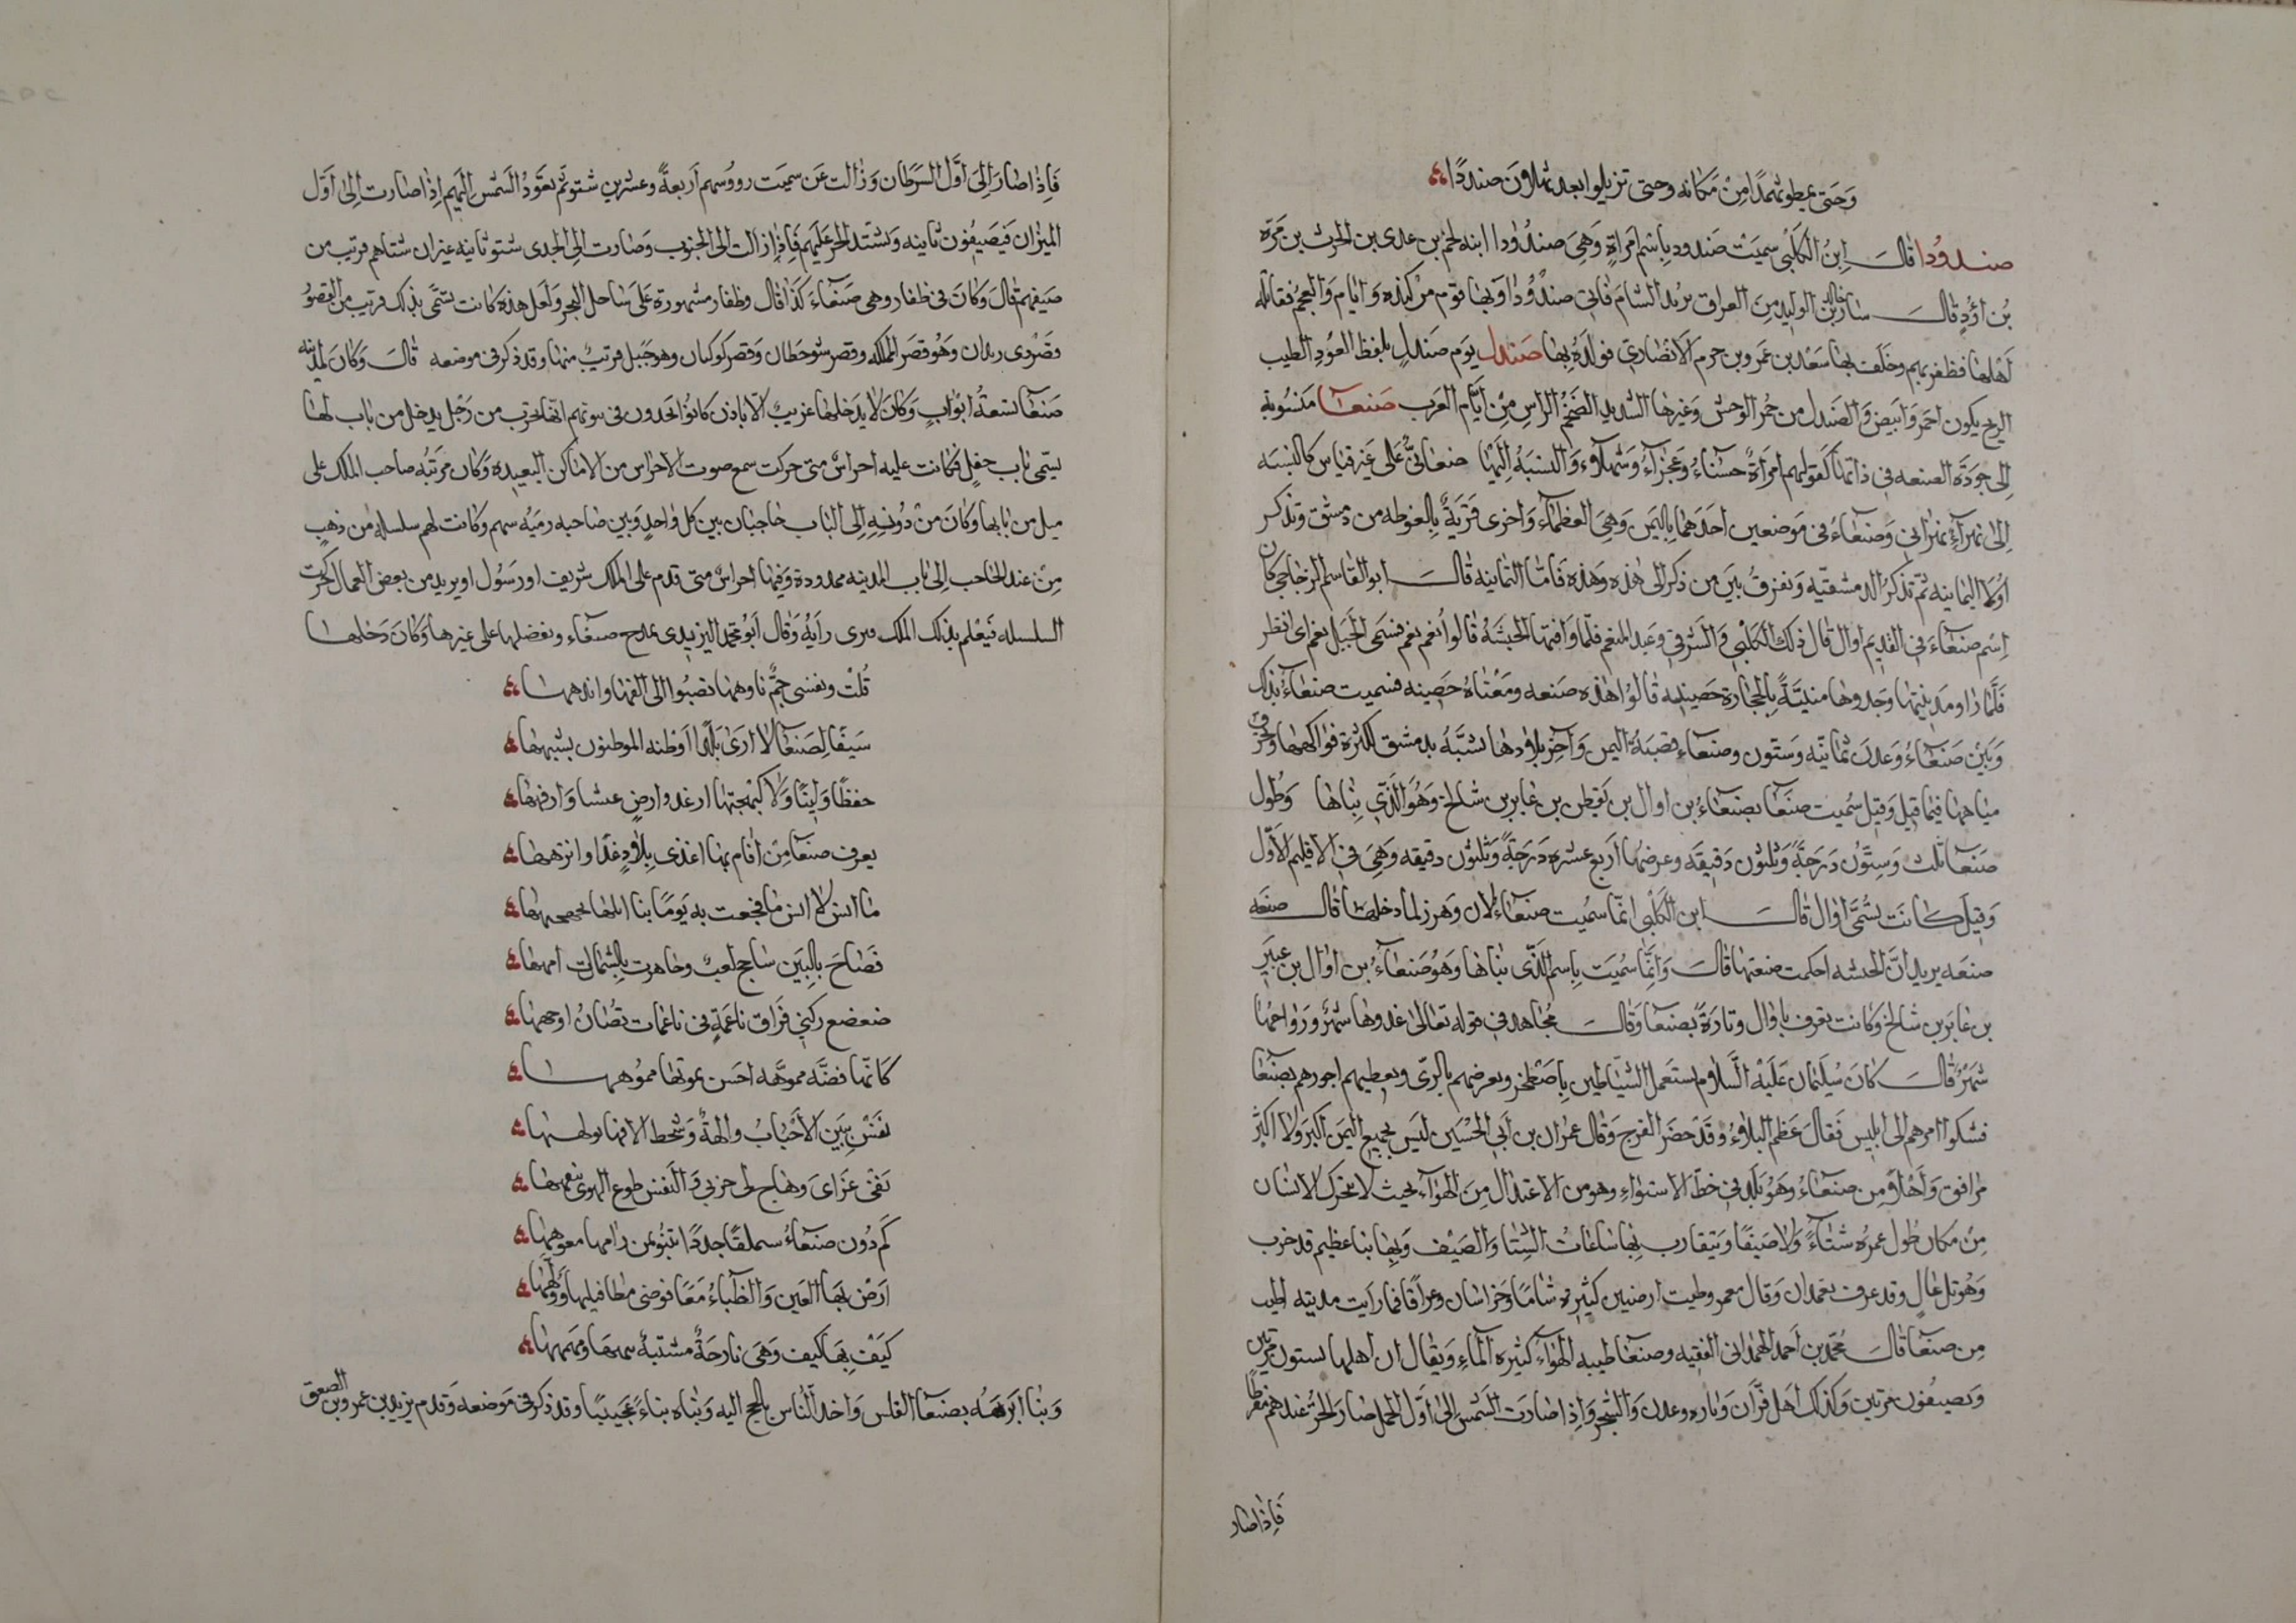 وَحَتى يحطو ثهمدًا مِنْ مَكانه وحتى تزيلوا بعد ثهلاون صنددًا
صندودا قالَ ابنُ الكَلبْى سميَتْ صَندود بِاسْم امرَاةٍ وَهِىَ صندُودا ابنه لخم بن عدى بن الحرث بن مَرّة
بْن اُدَدٍ قالَ سَار خالد بْن الوليد مِنَ العراق يريد الشامَ فَاتى صندُودَا وَبهَا قومٌ من كنده وَايَام وَالعجمُ فقاتله
اَهْلهَا فظفر بهم وخلف بهَا سَعْد بن عمرو بن حرم الانصَارى فولدَهُ بهَا صَندل يوَم صَندلٍ بلفظ العوُدِ الطيب
الريح يكون احمَر وَابيَض وَالصَندل من حُمر الوَحش وَغيرهَا الشديد الضَخمُ الراس مِنْ ايّام العَرب صَنعآ مَنسُوبة
اِلى جودَة الصنعه فى ذاتهَا كقولهم امرَاةٌ حسْنَاءُ وَعَجزاءُ وَشهلاءُ وَالنسبَةُ اِليهَا صنعانىٌّ عَلى غَير قيَاس كالنسبَه
اِلى بَهراءَ بَهرانى وَصَنعَاءُ فى مَوضعين احَدَهمَا بِاليمَن وَهىَ العظماءُ وَاخرى قَريَةٌ بِالغوطه من دمشق وَنذكر
اَولا اليمَانيه ثمّ نَذكرُ الدمشقيّه وَنفرقُ بَين من ذكر الى هٰذه وَهٰذه فَامّا اليَمَانيه قالَ ابوالقاسم الزجاجى كان
اِسْم صنعَاءَ فى القديم اوال قال ذلك الكلبْى وَالشرقى وَعَبد المنعم فلمّا وَافتهَا الحبَشَةُ قالوا نعَم نعَم فسَمى الجبَل نعَم اى انظر
فَلمّا رَاو مَدينتهَا وَجدوهَا مبنيّةً بِالحجَارة حَصينه قَالُوا هٰذه صَنعه وَمَعْنَاهُ حَصِينه فسميت صنعَاءُ بذلك
وَبَيْنَ صَنعَاءُ وَعدن ثمَانيَه وَسَتون وصنعاء قصبَةُ اليمن وَاحْرِ بلَادهَا تشبَّهُ بدمشق لكثرة فواكههَا وتخرق
ميَاههَا فيمَا قيل وَقيل سُميت صنعَا بصنعَاءُ بن اوال بن يَقطن بن عابر بن شالخ وَهُوَ الذّى بنَاهَا وَطُول
صَنعَآ ثلث وَستُّون دَرَجَةً وَثلثون دَقيقَه وَعرضُهَا اَربع عشره دَرَجَةً وَثلثون دقيقه وَهىَ فى الاقليم الاوّل
وَقيلَ كانَت تسُمّى اوال قالَ ابن الكَلبْى انمّا سمُيت صنعَاءُ لان وَهرز لما دخلهَا قال صنعَه
صنعَه يريد انّ الحبشه احكمت صنعتهَا قالَ وَانّمَا سُميَت بِاسم الذّى بنَاهَا وَهوُ صَنعَاءُ بن اوال بن عبَير
بن عابَر بن شالخ وكَانت تعرف باوال وتارَةً بصنعَا وَقالَ مجاهد فى قوله تعالى غدوهَا شهْرٌ وَرَوَاحهَا
شهرٌ قالَ كانَ سُليمَان عَليْه السَّلام يستعَمل الشيَاطين بِاصطخر ويعرضهم بالرىّ ويعطيهم اجورهم بصنعَا
فشكوا امرهم الى ابليس فقالَ عَظمَ البلاءُ وَقدْ حَضَر الفَرج وَقال عمران بن اَبى الحُسَين ليَس بجميع اليمَن اكبَر وَلا اكثر
مَرافق وَاَهْلا مِن صنعَاءُ وَهوُ بَلد فى خط الاستواء وَهو من الاعتدال مِن الهوَاء بحيث لا يتحوّل الانسَان
مِنْ مكان طُول عمره شتاءً وَلا صَيفًا وَيتقارب بهَا ساعَاتُ الشِتَا وَالصَيْف وَبهَا بنا عظيم قد خرب
وَهُوَ تل عَالٍ وقد عرف بغمدان وَقال معمر وطيت ارضين كثيره شامًا وَخراسَان وعراقًا فمَا رَايت مدينه اطيب
مِن صنعَآ قالَ مُحَمّد بن اَحمد الهمْدانى الفقيه وصنعَا طيبه الهوَاءُ كثيرة الماءِ وَيقال ان اهلهَا يشتون مرتين
وَيصيفون مرتين وَكذلك اَهل فرّان وَمَاره وعدن وَالشحر وَاِذا صَارَت الشمس الى اوّل الحمل صَار الحرُّ عندهم مفرطًا
فَاِذَا صَار
فَاِذا صَارَ اِلىَ اوّل السَرَطان وَزالت عَن سميَت رووسهم اَربعَةً وعشرين شتو ثم تعَوُد الشمس اليهم اِذا صارت اِلى اوّل
الميزان فيَصَيفون ثانيه وَيشتد الحر عَليهم فَاِذا زالت الى الجنوب وَصَارت اِلى الجدى شتو ثانيه غير ان شتاهم قريب من
صَيفهم قالَ وَكانَ فى ظفار وهى صَنعَاءَ كذا قال وظفار مشهورة عَلى سَاحل البحر وَلعل هذه كانت تسَمّى بذلك قريب من القصوُر
وقصر ذى ريدان وَهوُ قصَر المملكه وقصر شوحطان وَقصر كوكبان وهو جَبل قريبٌ منها وقد ذكر فى موضعه قالَ وَكانَ لمدينة
صَنعَآ تسعَةُ ابوْابٍ وَكان لا يدَخلهَا غريبٌ اِلا باذن كانوُا يَجدون فى سوتهم انهَا تخرب من رَجلٍ يدخل من بَاب لهَا
يسَمّى بَاب حقل فكانت عليه اجراسٌ متى حركت سمع صوت الاجراس من الامَاكن البعيده وَكان مَرتبَه صَاحب الملك على
ميل من بابهَا وَكانَ منْ دُونهِ اِلى البَاب حَاجبَان بين كل وَاحدٍ وَبين صَاحبه رميَهُ سهم وَكانت لهم سلسلة من ذهبٍ
مِنْ عند الحَاجب اِلى بَاب المدينه ممدودة وَفيها اجراسٌ متى قدم على الملك شريف اور سوُل او بريد من بعض العمال حركت
السلسله فَيعْلم بذلك الملك فيرى رايَهُ وَقال اَبوُ محمّد اليزيدى يمدح صنعَاء ويفضلها على غيرهَا وَكان دَخلهَا
قُلتُ ونفسى جمٌّ تاوههَا تصبُوا الى الفهَا واندههَا
سَقيًا لصَنعَا لا ارَى بَلدًا اَوْطنه الموطنون يشبههَا
خفظًا وَلينًا وَلا كبهجتهَا ارغد وارضٍ عيشا وَارفههَا
يعرف صنعَا مِنْ اَقام بهَا اغذى بِلادٍ غذًا وانزههَا
مَا انس لا انس مَا فجعت به يَومًا بنا ابلهَا
فصَاحَ بالبيَن سَاجح لعبٌ وجاهرت بِالشمات امههَا
ضعضع ركنى فرَاق نَاعمَةٍ فى ناعمَات تُصَانُ اوجههَا
كانّها فضّه مموّهَه احسَن تمويهَا مموُههَا
نفسٌ ببَين الاحْبَابُ والهةٌ وَشحط الافهَا يولههَا
نفى عَزاى وهَاج لى حزنى وَالنفس طوع الهوى ينفههَا
كَم دُون صنعَاءُ سملقًا جددًا تنبُو بمن رامهَا معوّهها
ارَضٌ بهَا العَين وَالظبَاءُ مَعًا فوضى مطا فيلهَا وَوُلههَا
كيَفَ بهَا كيف وَهىَ نازحَةٌ مشتبهٌ تيههَا ومَهمههَا
وَبنا ابَرهَةُ بصنعَا القليس وَاخذ النّاس بالحج اليه وَبناه بناءً عَجيبًا وقد ذكر فى مَوضعه وَقدم يزيد بن عمرو بن الصعق